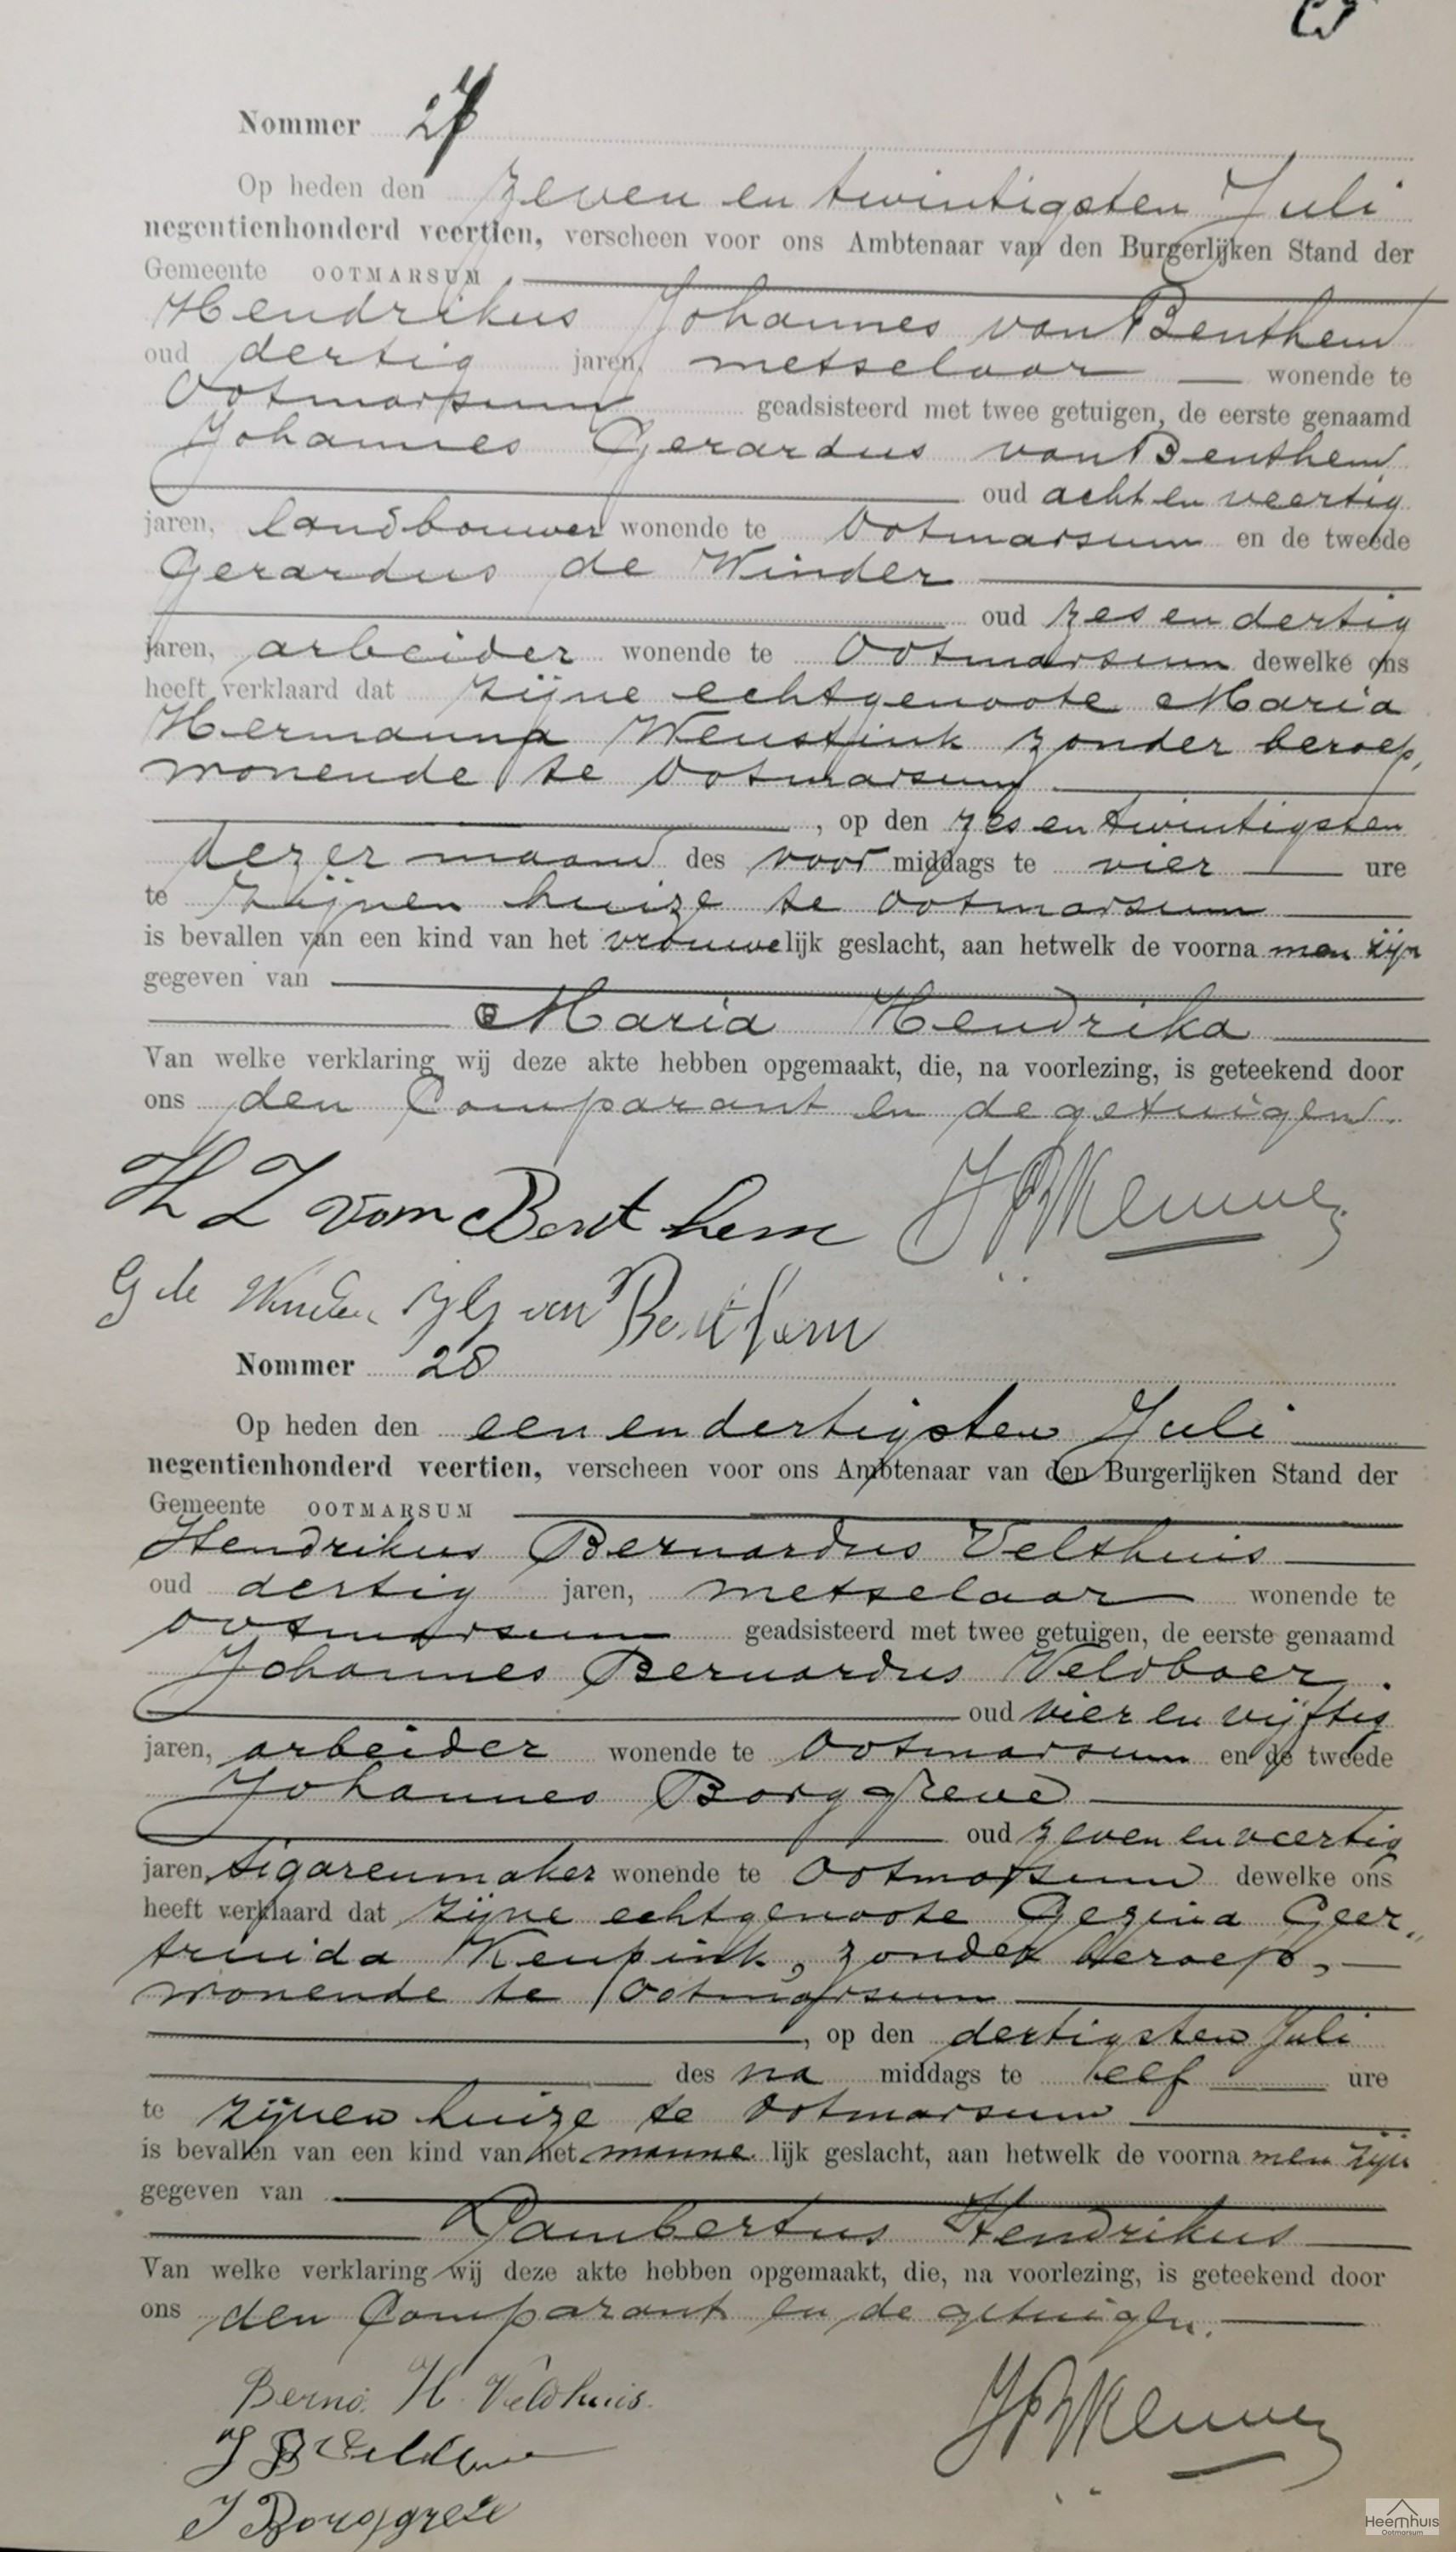 Nommer 27
Op heden den zeven en twintigsten Juli
negentienhonderd veertien, verscheen voor ons Ambtenaar van den Burgerlijken Stand der
Gemeente OOTMARSUM
Hendrikus Johannes van Benthem
oud dertig jaren, metselaar wonende te
Ootmarsum geadsisteerd met twee getuigen, de eerste genaamd
Johannes Gerardus van Benthem
oud acht en veertig
jaren, landbouwer wonende te Ootmarsum en de tweede
Gerardus de Winder
oud zes en dertig
jaren, arbeider wonende te Ootmarsum dewelke ons
heeft verklaard dat zijne echtgenoote Maria
Hermanna Wenstink zonder beroep,
wonende te Ootmarsum
, op den zes en twintigsten
dezer maand des voor middags te vier ure
te zijnen huize te Ootmarsum
is bevallen van een kind van het vrouwelijk geslacht, aan hetwelk de voorna men zijn
gegeven van
Maria Hendrika
Van welke verklaring wij deze akte hebben opgemaakt, die, na voorlezing, is geteekend door
ons den Comparant en de getuigen.
H J van Benthem
G de Winder J G van Benthem
Nommer 28
Op heden den een en dertigsten Juli
negentienhonderd veertien, verscheen voor ons Ambtenaar van den Burgerlijken Stand der
Gemeente OOTMARSUM
Hendrikus Bernardus Velthuis
oud dertig jaren, metselaar wonende te
Ootmarsum geadsisteerd met twee getuigen, de eerste genaamd
Johannes Bernardus Veldboer
oud vier en vijftig
jaren, arbeider wonende te Ootmarsum en de tweede
Johannes Borggreve
oud zeven en veertig
jaren, sigarenmaker wonende te Ootmarsum dewelke ons
heeft verklaard dat zijne echtgenoote Gezina Geer„
truida Keupink, zonder beroep,
wonende te Ootmarsum
, op den dertigsten Juli
des na middags te elf ure
te zijnen huize te Ootmarsum
is bevallen van een kind van het manne lijk geslacht, aan hetwelk de voorna men zijn
gegeven van
Lambertus Hendrikus
Van welke verklaring wij deze akte hebben opgemaakt, die, na voorlezing, is geteekend door
ons den Comparant en de getuigen.
Bernd. H. Veldhuis.
J B Veldboer
J Borggreve
Heemhuis
Ootmarsum